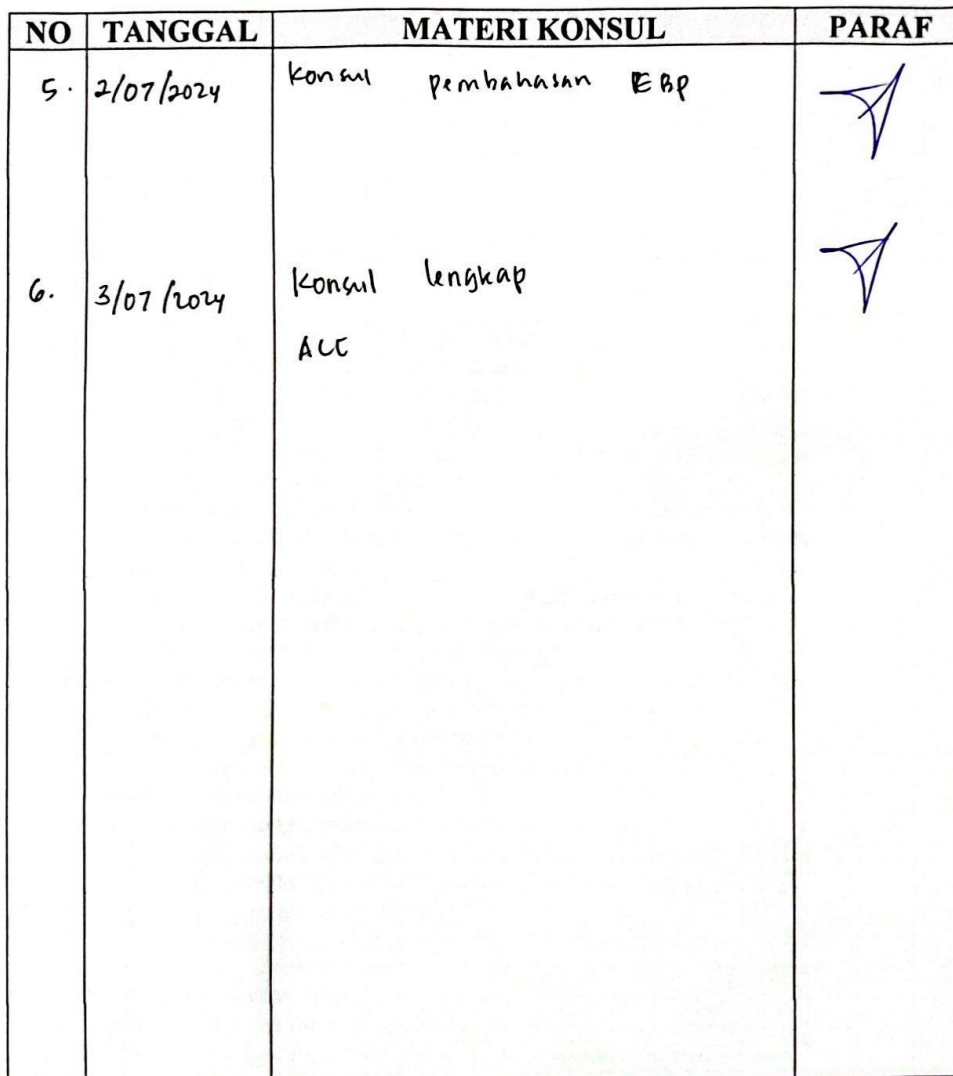 NO TANGGAL MATERI KONSUL PARAF
5. 2/07/2024 Konsul pembahasan EBP
6. 3/07/2024 Konsul lengkap
ACC